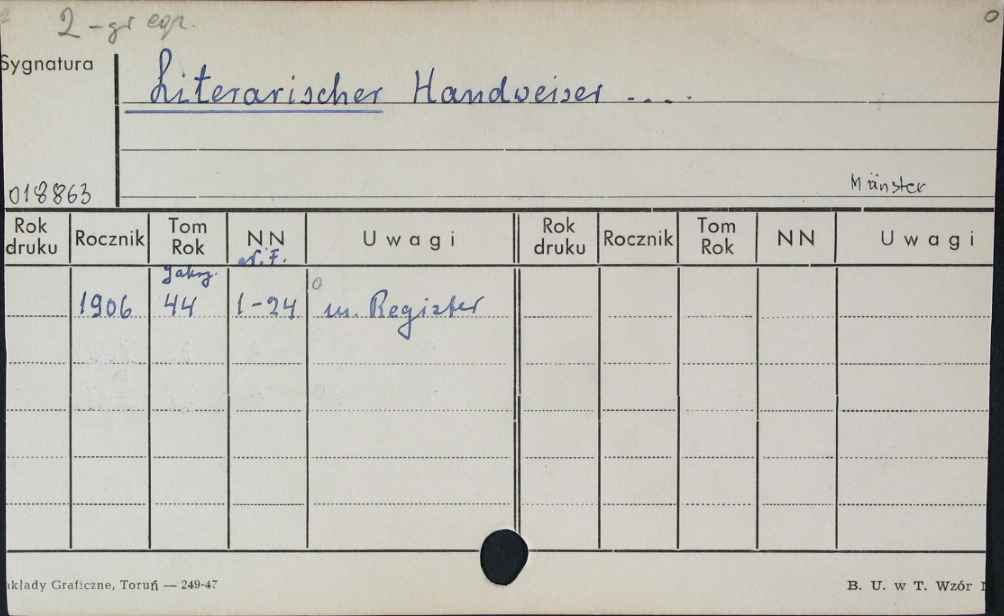 2-gi egz. 0
Sygnatura
Literarischer Handweiser ....
018863 Münster
Rok druku Rocznik Tom Rok NN Uwagi Rok druku Rocznik Tom Rok NN Uwagi
Jahrg. N.F.
1906 44 1-24 m. Register
akłady Graficzne, Toruń — 249-47 B. U. w T. Wzór